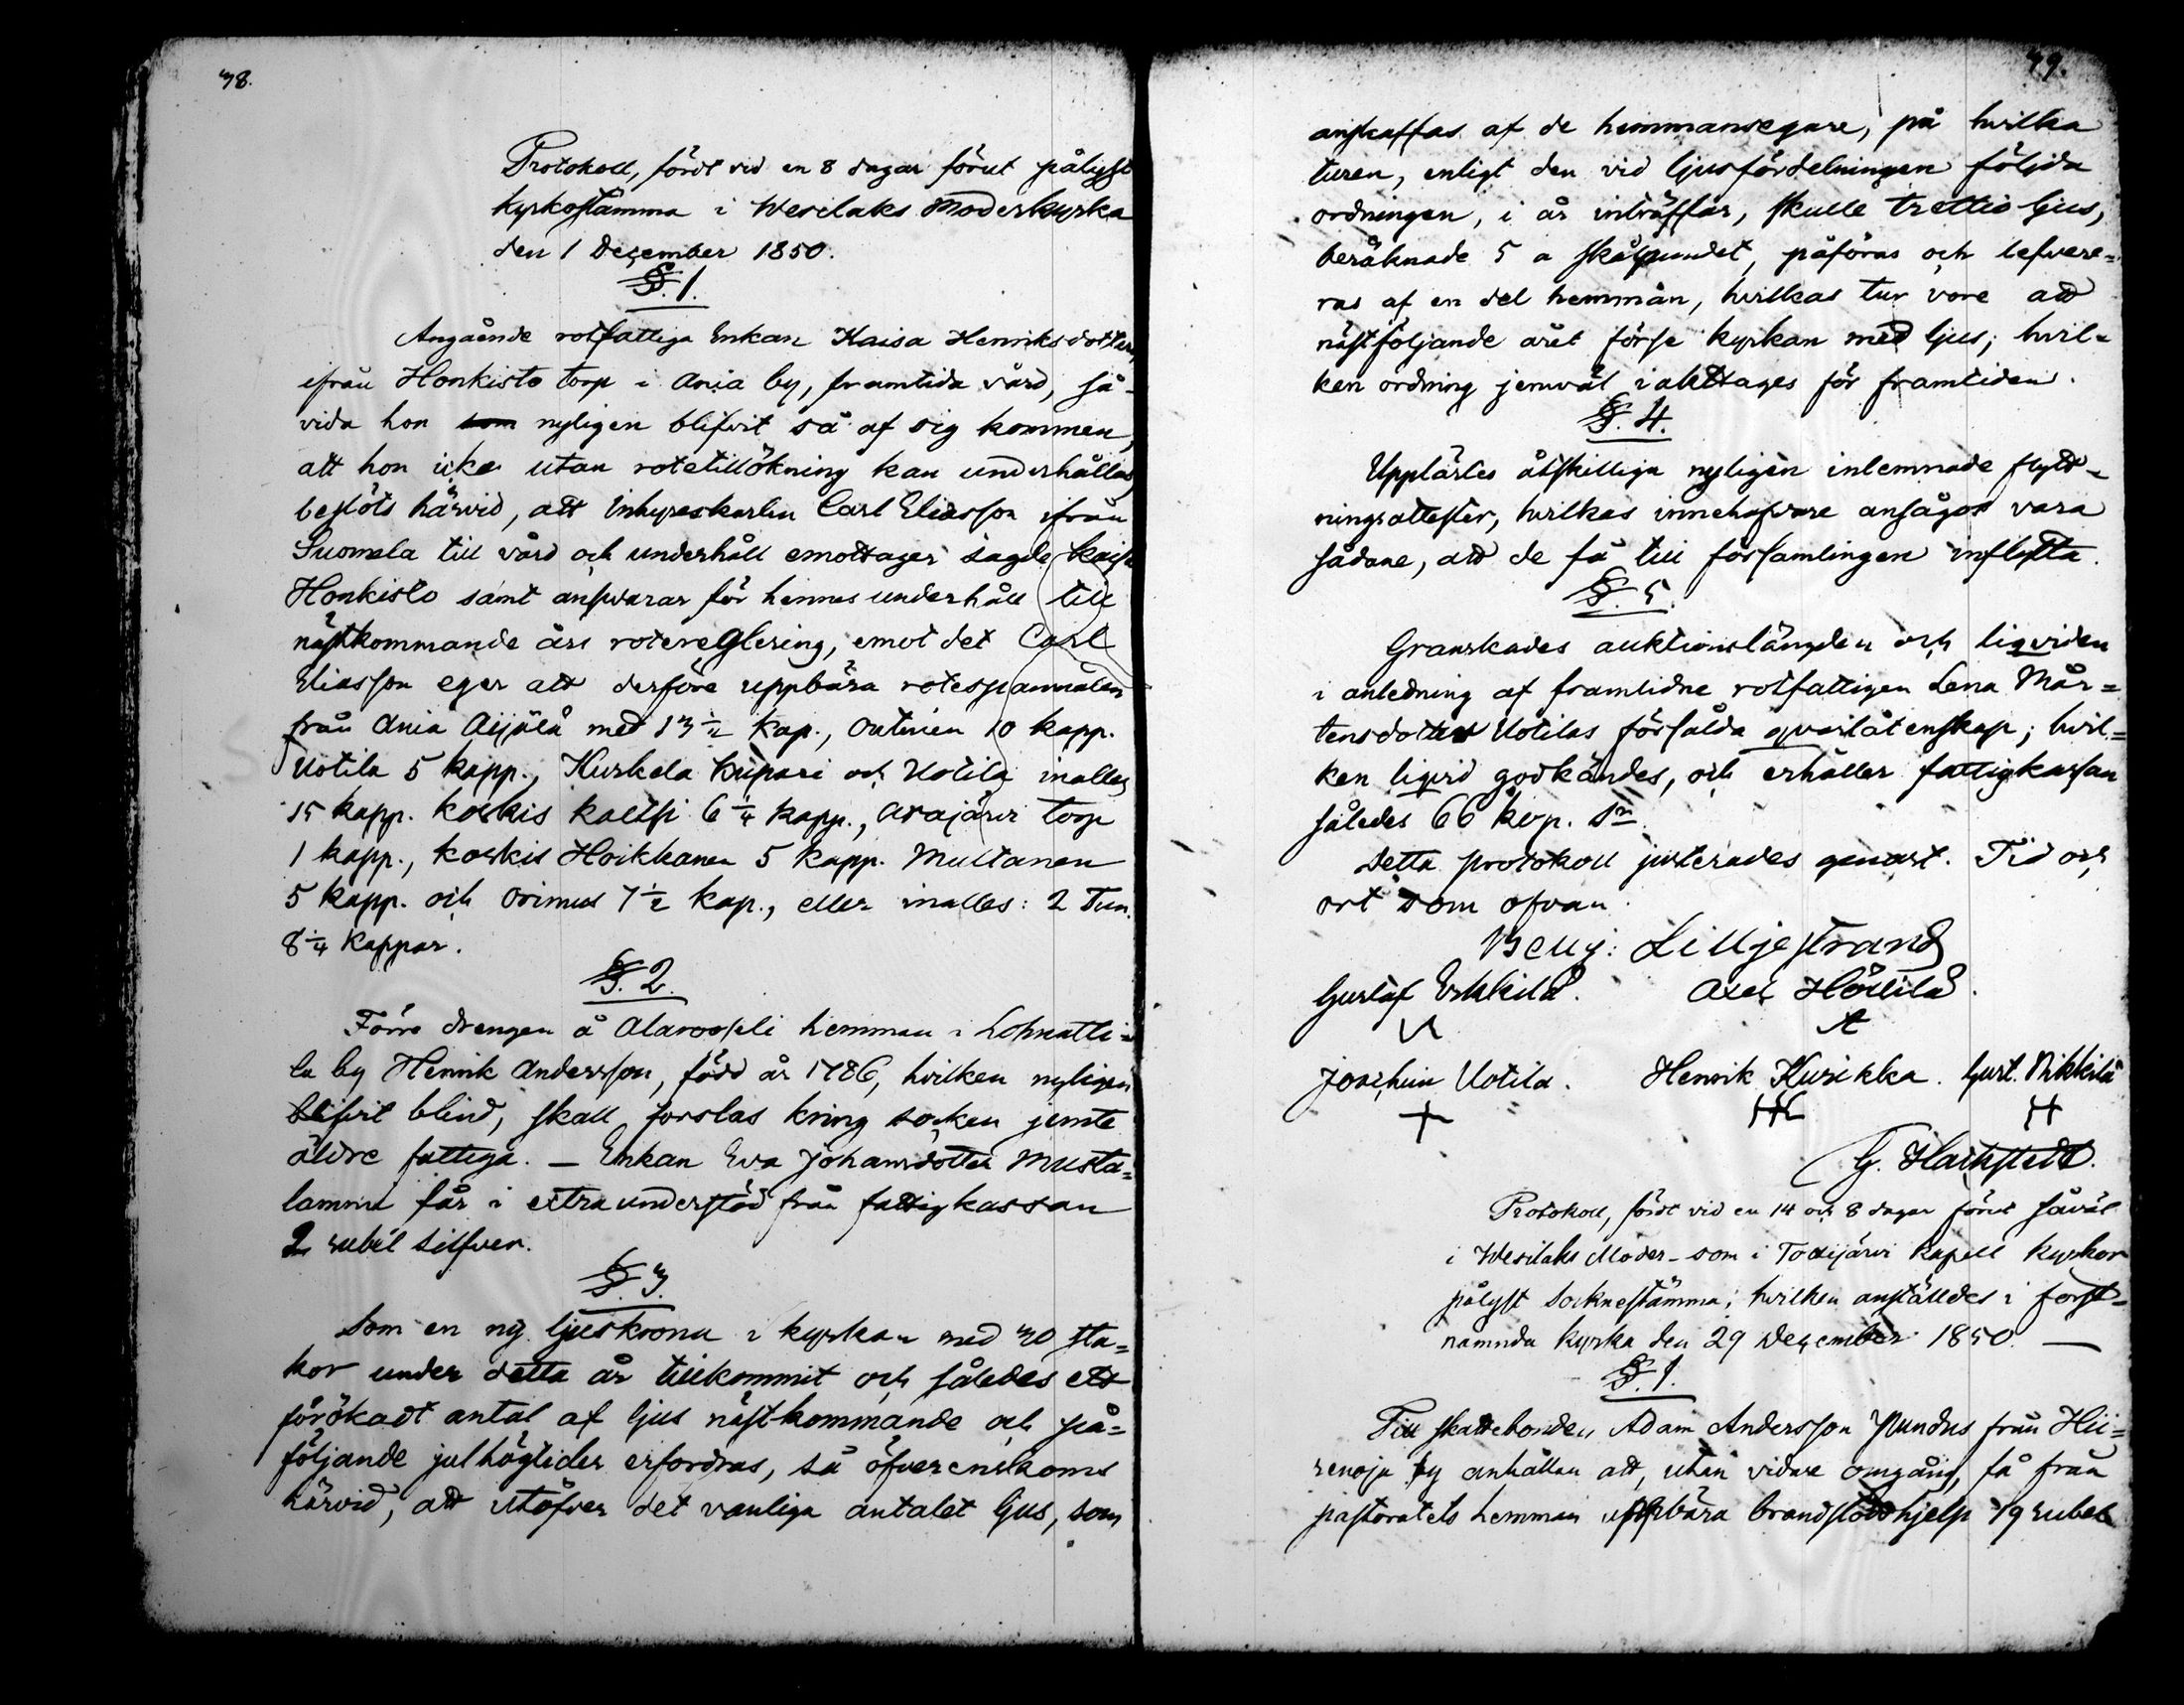 38.
Protokoll, fördt vid en 8 dagar förut pålyst
kyrkostämma i Wesilaks Moderkyrka
den 1 December 1850.
§. 1.
Angående rotfattiga Enkan Kaisa Henriksdotters
ifrån Honkisto torp i Ania by, framtida vård, så-
vida hon som nyligen blifvit så af sig kommen,
att hon icke utan rotetillökning kan underhållas
beslöts härvid, att Inhyseskarlen Carl Eliasson ifrån
Suomela till vård och underhåll emottager sagde Kaisa
Honkisto samt ansvarar för hennes underhåll till
nästkommande års rotereglering, emot det Carl
Eliasson eger att derföre uppbära rotespannmålen
från Ania Äijälä med 13 1/2 kap., Outinen 10 kapp.
Uotila 5 kapp., Kurkela Krupari och Uotila inalles
15 kapp. koskis kaltsi 6 1/4 kapp., Arajärvi torp
1 kapp., koskis Hoikkanen 5 kapp. Multanen
5 kapp. och Orimus 7 1/2 kap., eller inalles: 2 Tun.
8 1/4 kappar.
§. 2.
Förre drengen å Alavoskeli hemman i Lohnatti-
la by Henrik Andersson, född år 1786, hvilken nyligen
blifvit blind, skall forslas kring socken jemte
äldre fattiga. – Enkan Eva Johansdotter Musta=
lammi får i extra understöd från fattigkassan
2 rubel silfver.
§. 3.
Som en ny ljuskrona i kyrkan med 30 sta=
kor under detta år tillkommit och således ett
förökadt antal af ljus nästkommande och på=
följande julhögtider erfordras, så öfverenskoms
härvid, att utöfver det vanliga antalet ljus, som
39.
anskaffas af de hemmansegare, på hvilka
turen, enligt den vid ljusfördelningen följda
ordningen, i år inträffar, skulle trettio ljus,
beräknade 5 a skålpundet, påföras och lefvere=
ras af en del hemman, hvilkas tur vore att
nästföljande året förse kyrkan med ljus; hvil=
ken ordning jemväl iakttages för framtiden.
§. 4.
Upplästes åtskilliga nyligen inlemnade flytt=
ningsattester, hvilkas innehafvare ansågos vara
sådane, att de få till församlingen inflytta.
§. 5.
Granskades auktionslängden och liqviden
i anledning af framlidne rotfattigen Lena Mår=
tensdotter Uotilas försålda qvarlåtenskap; hvil=
ken liqvid godkändes, och erhåller fattigkassan
således 66 kop. Sr.
Detta protokoll justerades genast. Tid och
ort som ofvan.
Benj: Lilljestrand
Gustaf Erkkilä. Axel Höllilä.
Joachim Uotila. Henrik Kurikka. Gust. Nikkilä
G. Hackstedt.
Protokoll, fördt vid en 14 och 8 dagar förut såväl
i Wesilaks Moder- som i Tottijärvi kapell kyrkor
pålyst Socknestämma, hvilken anställdes i först=
nämnda kyrka den 29 December 1850. –
§. 1.
Till skattebonden Adam Andersson Pundus från Hii=
renoja by anhållan att, utan vidare omgång, få från
pastoratets hemman uppbära brandstodshjelp 19 rubel